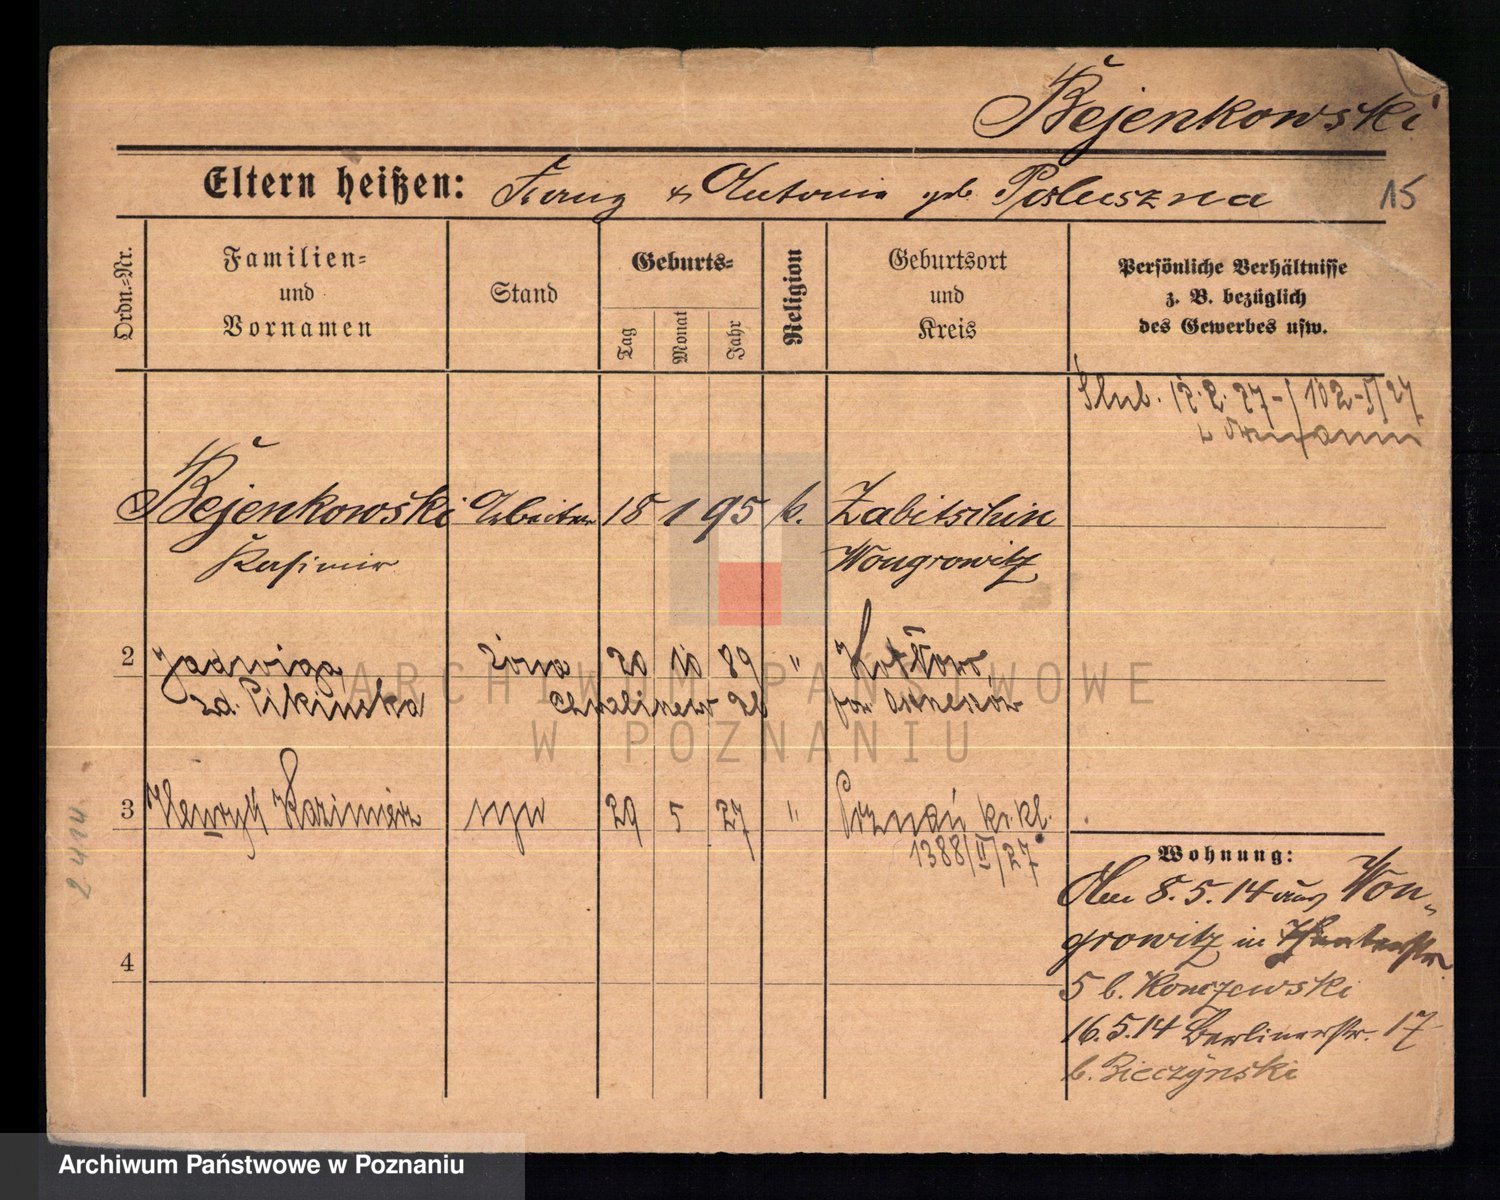 Bejenkowski
Eltern heißen: Franz & Antonie geb. Posluszna 15
Ordn.-Nr.
Familien-
und
Vornamen
Stand
Geburts-
Tag
Monat
Jahr
Religion
Geburtsort
und
Kreis
Persönliche Verhältnisse
z. B. bezüglich
des Gewerbes usw.
Ślub. 12.2.27
Bejenkowski Arbeiter 18 1 95 k. Zabitschin
Kasimir Wongrowitz
2 Jadwiga żona 20 10 89 "
zd. Pikińska
3 Henryk Kazimierz syn 29 5 27 " Poznań kr. kl.
1388/II/27
4
Wohnung:
Am 8.5.14 aus Won-
growitz in
5 b. Konczewski
16.5.14 Berlinerstr. 17
b. Bieczynski
2414
ARCHIWUM PAŃSTWOWE
W POZNANIU
Archiwum Państwowe w Poznaniu